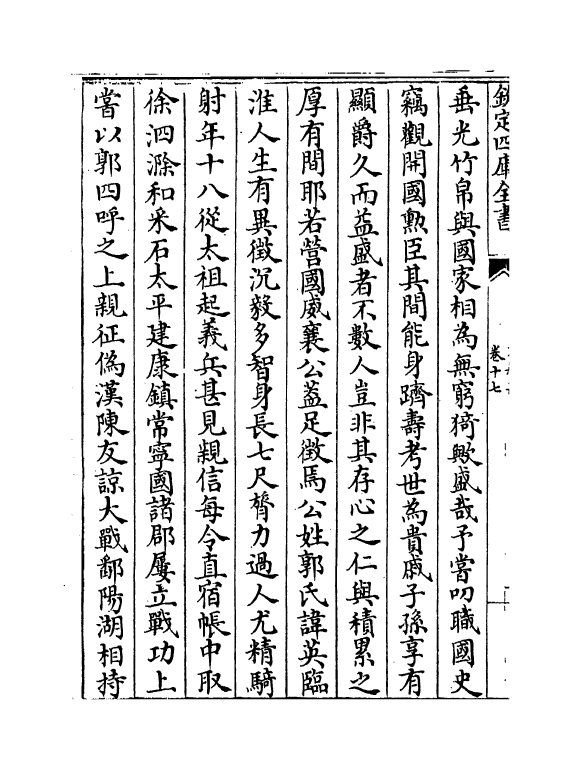 欽定四庫全書
卷十七
垂光竹帛與國家相為無窮猗歟盛哉予嘗叨職國史
竊觀開國勲臣其間能身躋壽考世為貴戚子孫享有
顯爵久而益盛者不數人豈非其存心之仁與積累之
厚有間耶若營國威襄公葢足徴焉公姓郭氏諱英臨
淮人生有異徴沉毅多智身長七尺膂力過人尤精騎
射年十八從太祖起義兵甚見親信每令直宿帳中取
徐泗滁和采石太平建康鎮常寧國諸郡屢立戰功上
嘗以郭四呼之上親征偽漢陳友諒大戰鄱陽湖相持